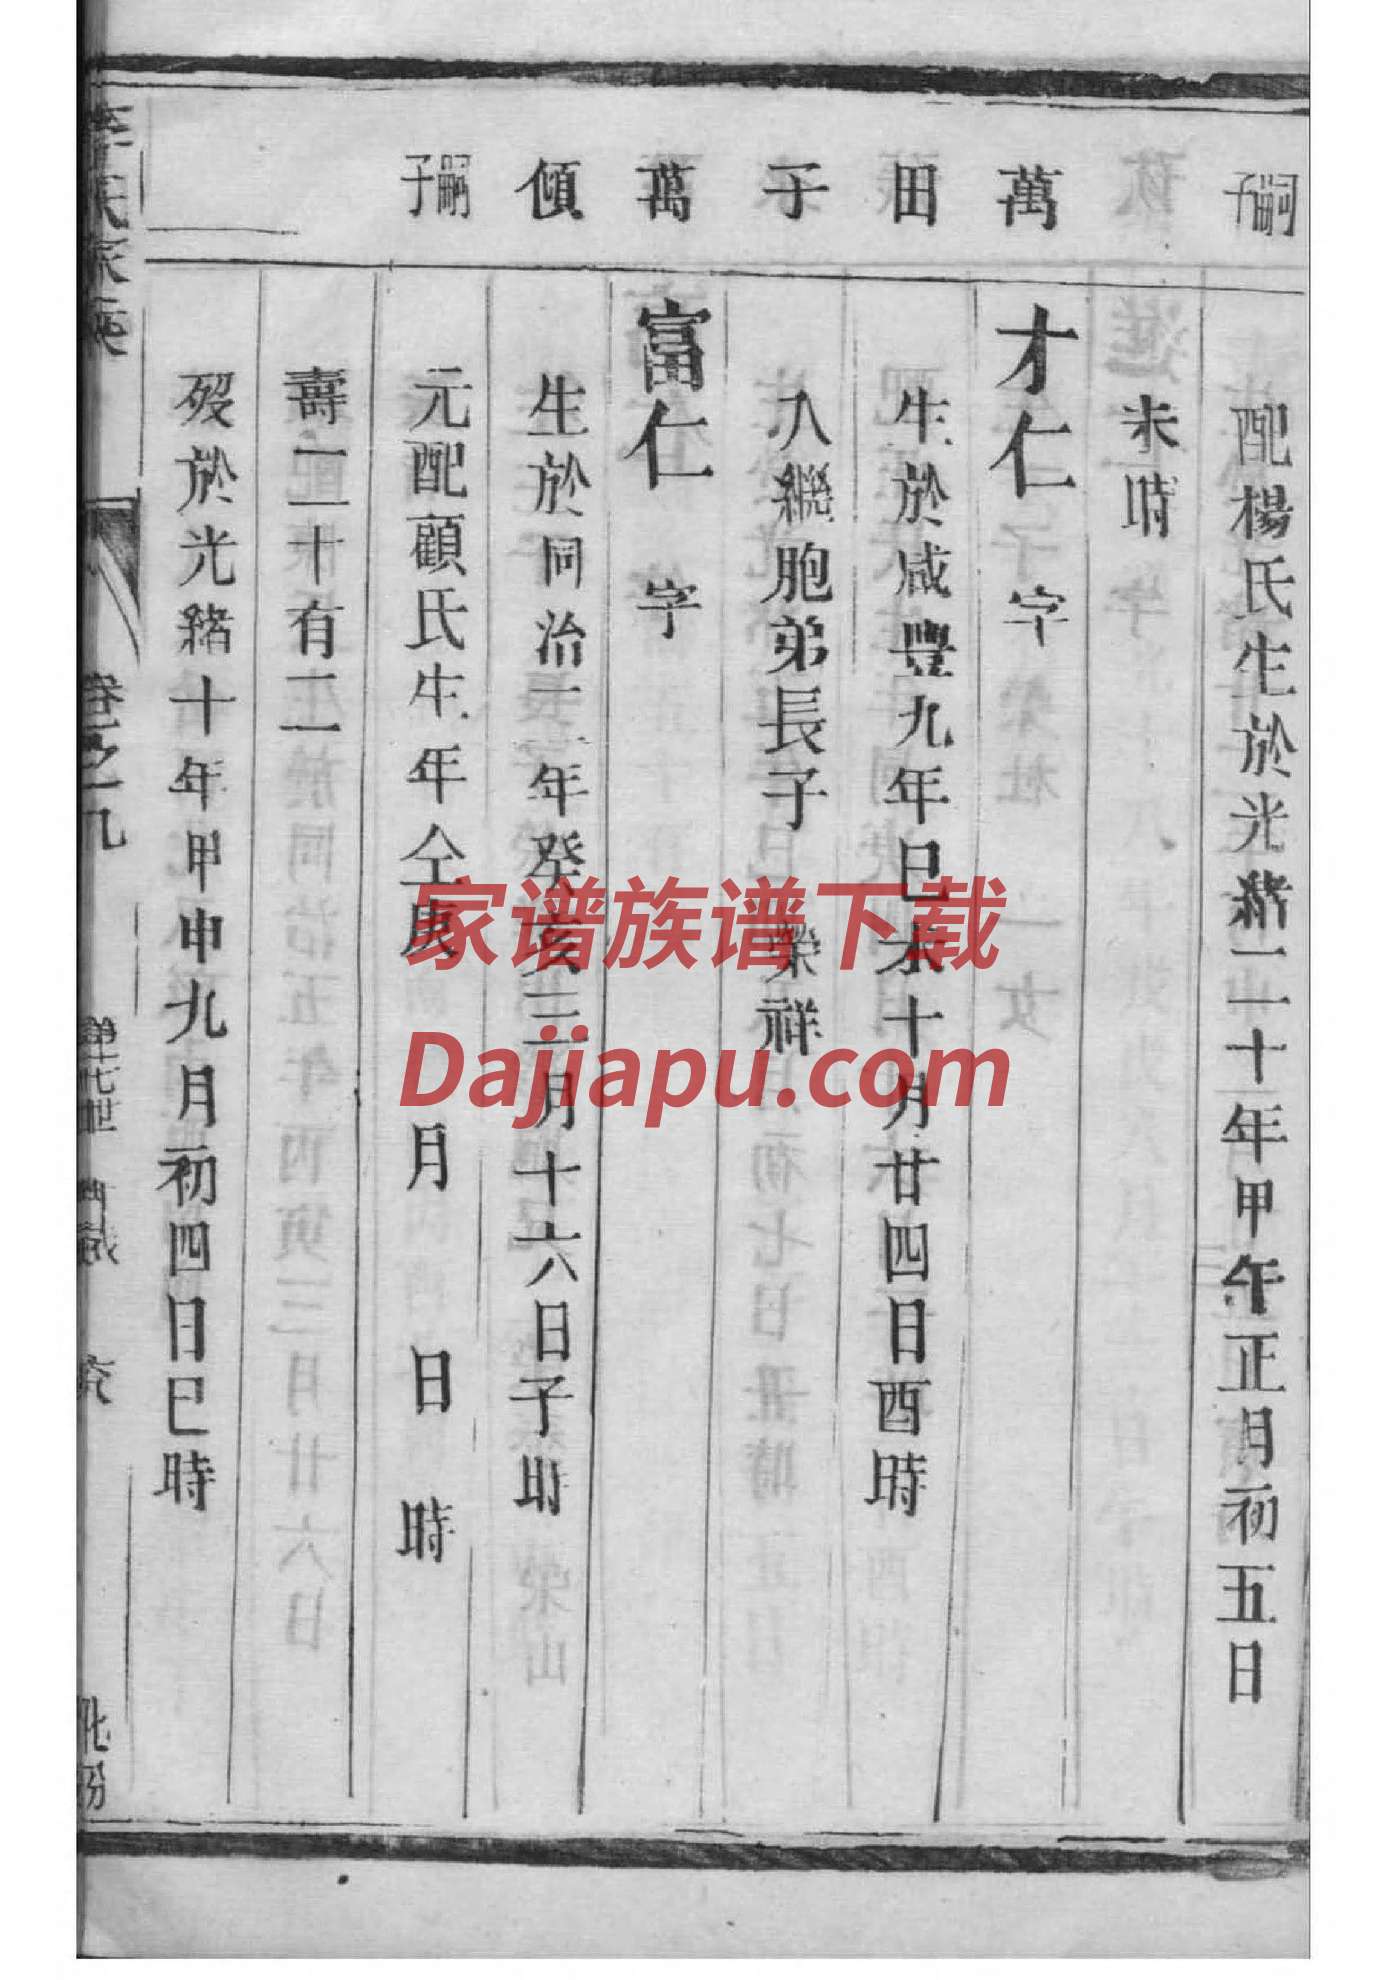 嗣子
配楊氏生於光緒二十年甲午正月初五日
未時
萬
才仁 字
田
生於咸豐九年巳未十月廿四日酉時
子
入繼胞弟長子 榮祥
萬
富仁 字
傾
生於同治二年癸亥三月十六日子時
嗣子
元配顧氏生年仝庚 月 日 時
壽二十有二
歿於光緒十年甲申九月初四日巳時
李氏家乘
卷之九
家谱族谱下载
Dajiapu.com